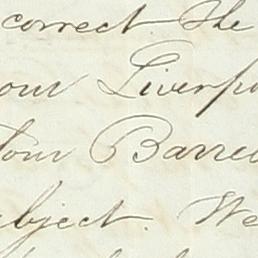 correct. The
our Liverpo
Tom Barre
bject. We